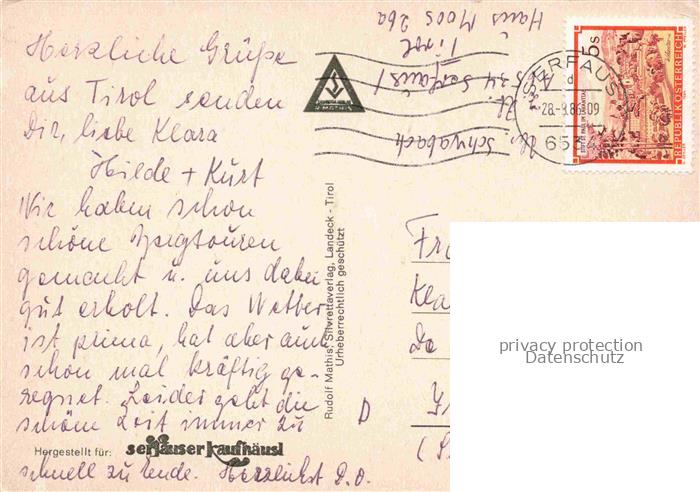 Herzliche Grüße
aus Tirol senden
Dir, liebe Klara
Hilde + Kurt
Wir haben schon
schöne Bergtouren
gemacht u. uns dabei
gut erholt. Das Wetter
ist prima, hat aber auch
schon mal kräftig ge-
regnet. Leider geht die
schöne Zeit immer zu
schnell zu Ende. Herzlichst D.O.
Hergestellt für: serfauser kaufhäusl
Rudolf Mathis, Silvrettaverlag, Landeck - Tirol
Urheberrechtlich geschützt
R. MATHIS
Schwabach
6534 Serfaus /
Tirol
Haus Moos 26a
SERFAUS
28.-9.86-09
6534
5s
REPUBLIK ÖSTERREICH
Fr
Kla
D
(S
privacy protection
Datenschutz